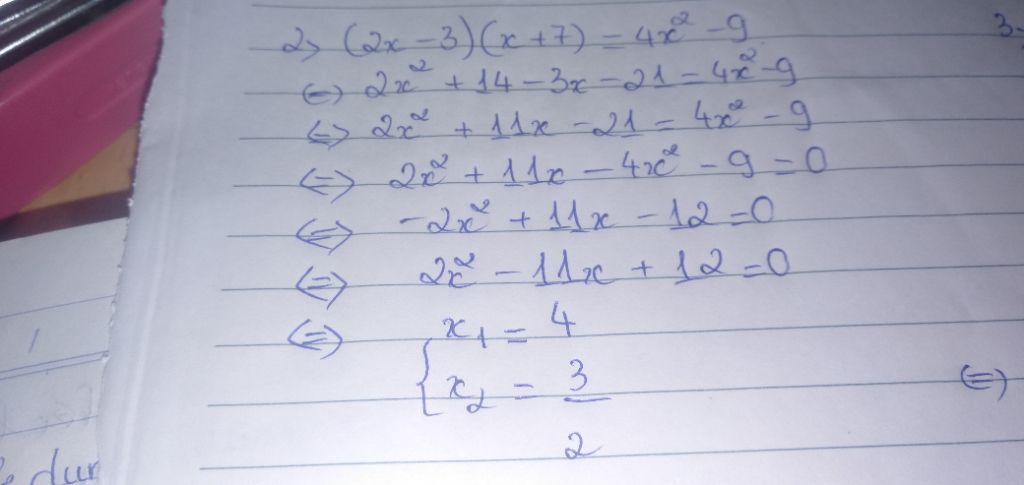 2> (2x-3)(x+7) = 4x² -9
3-
(=) 2x² + 14 - 3x - 21 = 4x² -9
<=> 2x² + 11x - 21 = 4x² - 9
<=> 2x² + 11x - 4x² - 9 = 0
<=> -2x² + 11x - 12 = 0
<=> 2x² - 11x + 12 = 0
<=> { x₁ = 4
x₂ = 3/2
<=>